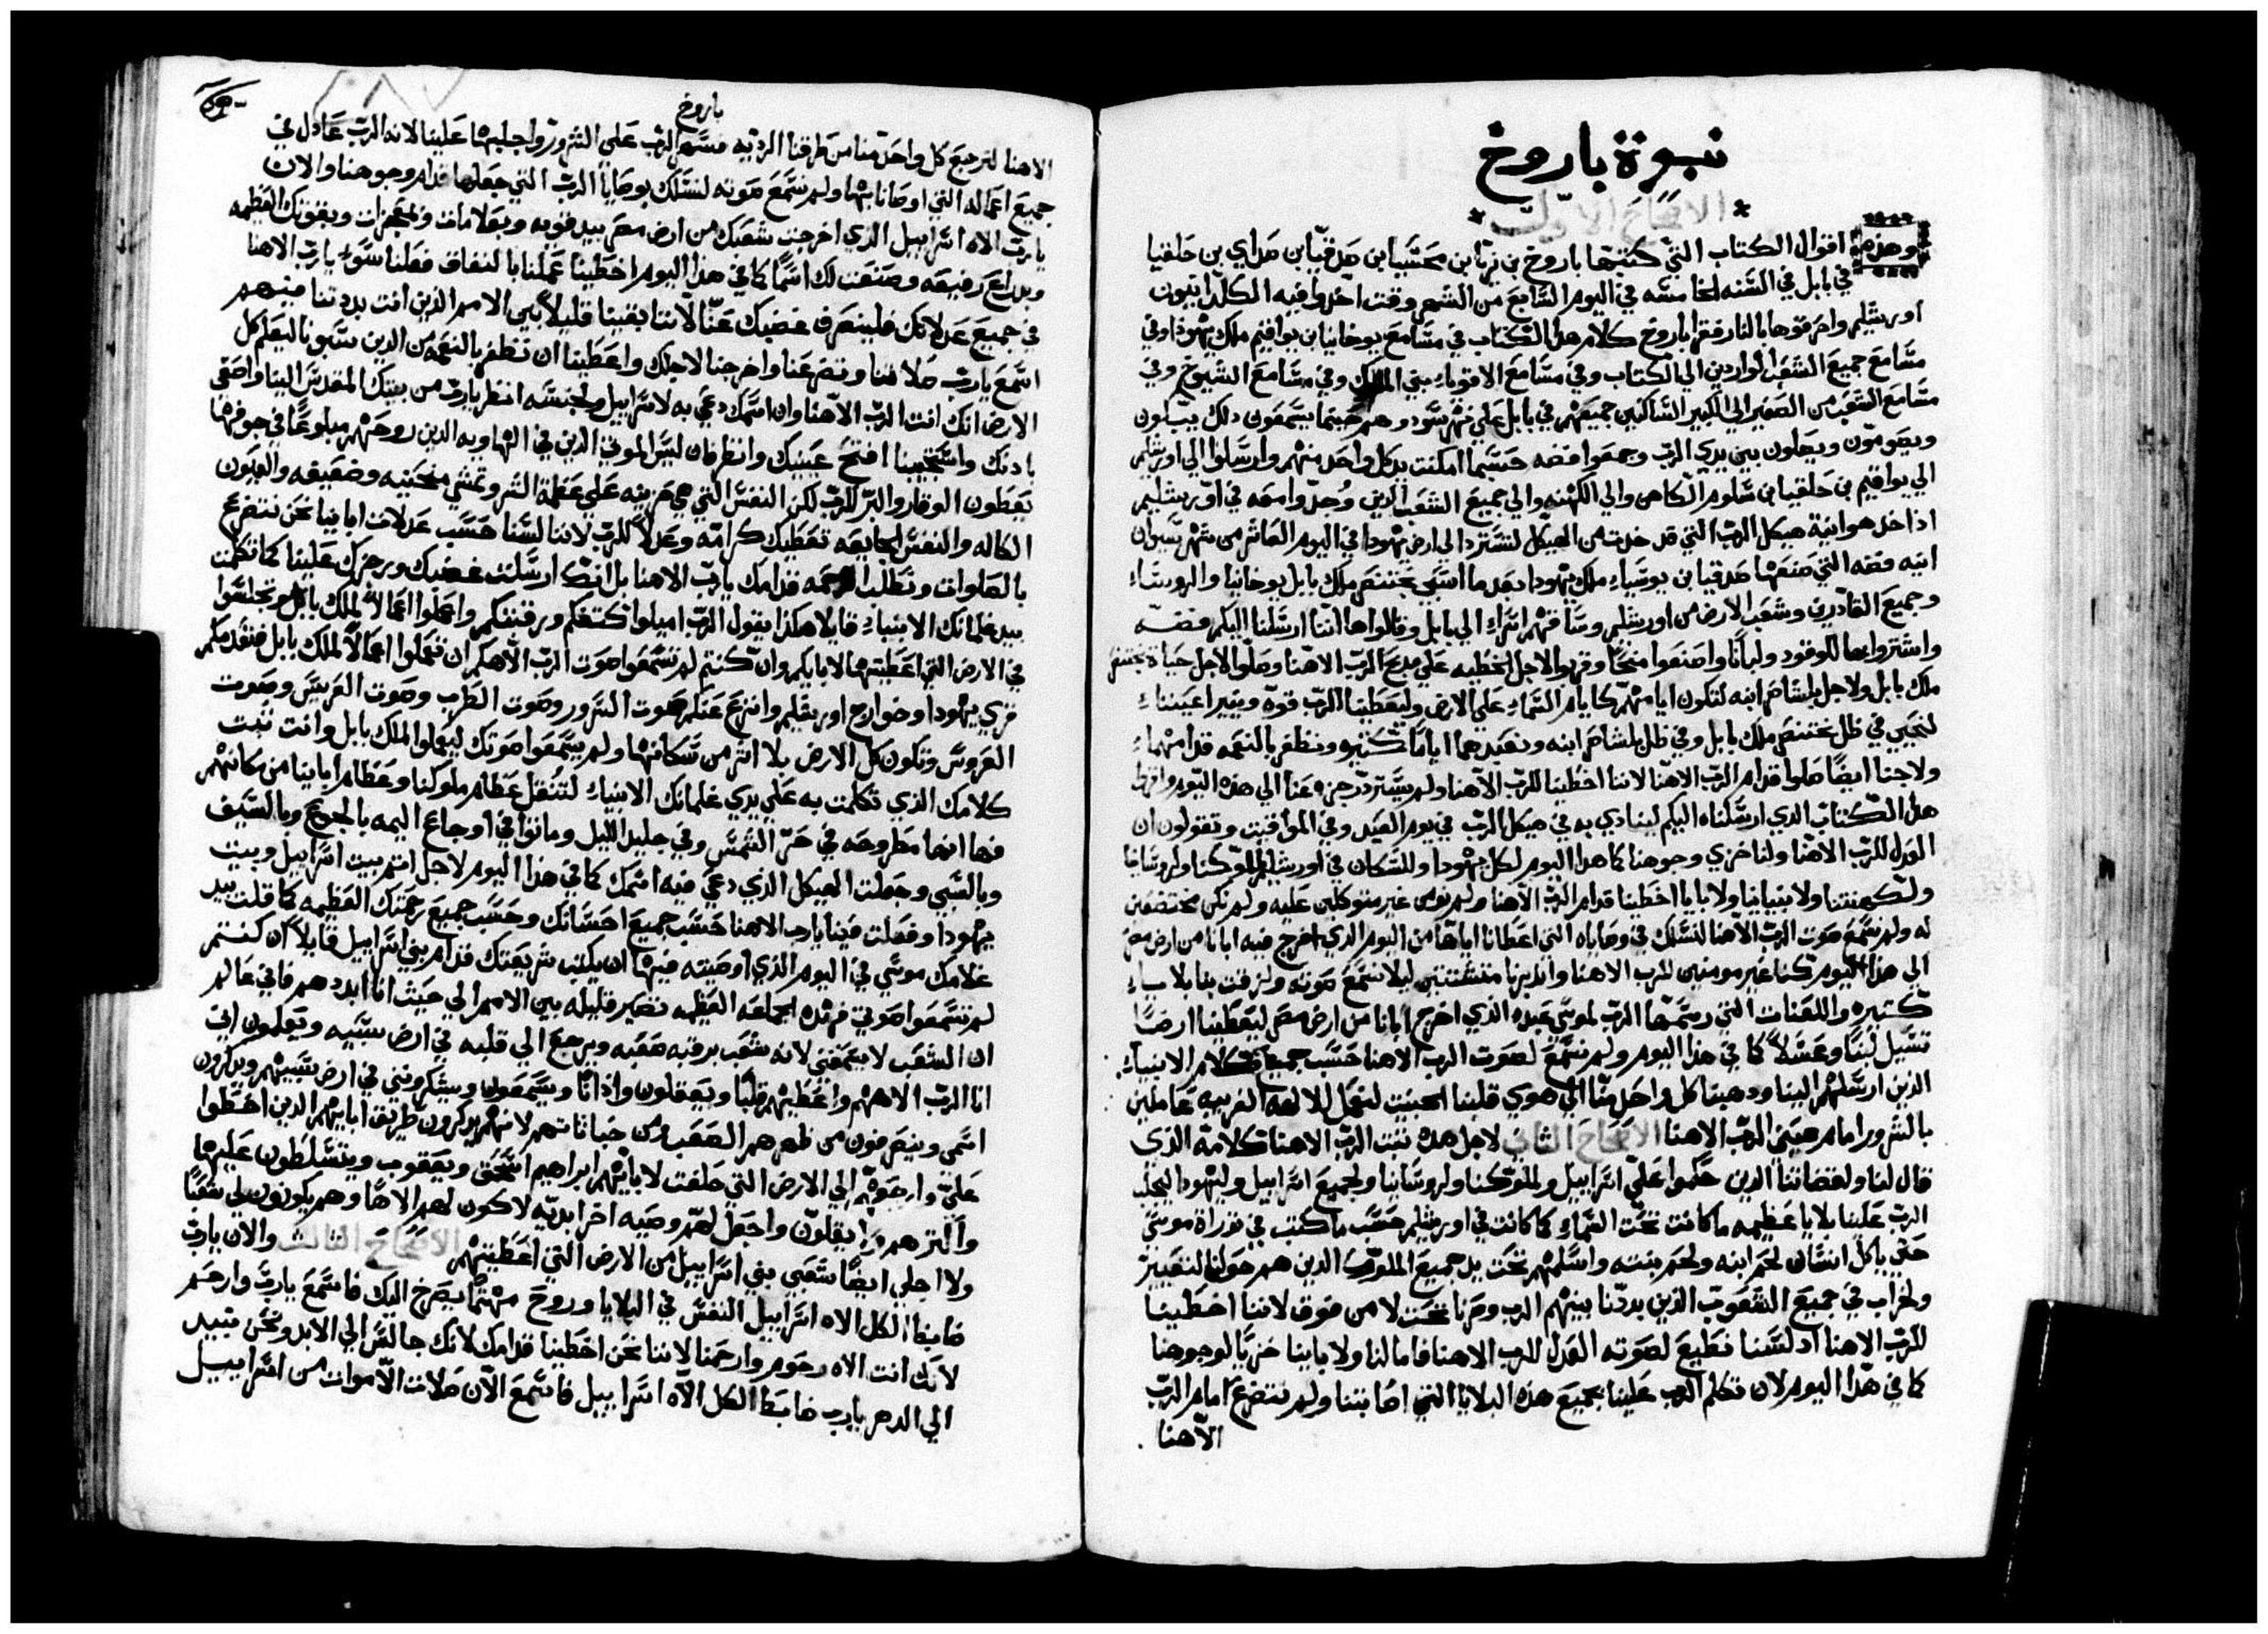 نبوة باروخ
الاصحاح الاول
وهذه اقوال الكتاب التي كتبها باروخ بن نريا بن محسيا بن صدقيا بن صداي بن حلقيا
في بابل في السنه الخامسه في اليوم السابع من الشهر وقت اخذوا فيه الكلدانيون
اورشليم واحرقوها بالنار فقرا باروخ كلام هذا الكتاب في مسامع يوخانيا بن يواقيم ملك يهودا وفي
مسامع جميع الشعب الواردين الى الكتاب وفي مسامع الاقوياء بني الملوك وفي مسامع الشيوخ وفي
مسامع الشعب من الصغير الي الكبير الساكنين جميعهم في بابل علي نهر سود وهم حينما يسمعون ذلك يبكون
ويصومون ويصلون بين يدي الرب وجمعوا فضه حسبما امكنت يد كل واحد منهم وارسلوا الي اورشليم
الي يواقيم بن حلقيا بن سلوم الكاهن والي الكهنه والي جميع الشعب الذين وُجدوا معه في اورشليم
اذ اخذ هو انية هيكل الرب التي قد خذت من الهيكل لتسترد الى ارض يهودا في اليوم العاشر من شهر سيوان
انيه فضه التي صنعها صدقيا بن يوسياء ملك يهودا بعد ما اسبي بختنصر ملك بابل يوخانيا والروساء
وجميع القادرين وشعب الارض من اورشليم وساقهم اسراء الي بابل وقالوا ها اننا ارسلنا اليكم فضه
واشتروا بها للوقود ولبانًا واصنعوا منحًا وقربوا لاجل الخطيه علي مدبح الرب الاهنا وصلوا لاجل حياة بختنصر
ملك بابل ولاجل بلشاصر ابنه لتكون ايامهم كايام السماء على الارض وليعطينا الرب قوة وينير اعيننا
لنحيي في ظل بختنصر ملك بابل وفي ظل بلشاصر ابنه ونعبدهما ايامًا كثيره ونظفر بالنعمه قدامهما
ولاجلنا ايضًا صلوا قدام الرب الاهنا لاننا اخطينا للرب الاهنا ولم يسترد رجزه عنا الي هذه اليوم واقروا
هذا الكتاب الذي ارسلناه اليكم لينادي به في هيكل الرب في يوم العيد وفي المواقيت وتقولون ان
العدل للرب الاهنا ولنا خزي وجوهنا كما هذا اليوم لكل يهودا وللسكان في اورشليم لملوكنا ولروسانا
ولكهنتنا ولانبيانا ولابايا اخطينا قدام الرب الاهنا ولم نومن غير متوكلين عليه ولم نكن مختضعين
له ولم نسمع صوت الرب الاهنا لنسلك في وصاياه التي اعطانا اياها من اليوم الذي اخرج فيه ابانا من ارض مصر
الي هذا اليوم كنا غير مومنين للرب الاهنا وانذرنا متشتتين ليلا نسمع صوته ولزقت بنا بلايا
كثيره واللعنات التي رسمها الرب لموسي عبده الذي اخرج ابانا من ارض مصر ليعطينا ارضًا
تسيل لبنًا وعسلًا كما في هذا اليوم ولم نسمع لصوت الرب الاهنا حسب جميع كلام الانبياء
الذين ارسلهم الينا ودهبنا كل واحد منا الي هوي قلبنا الخبيث لنعمل للالهه الغريبه عاملين
بالشرور امام عيني الرب الاهنا الاصحاح الثاني لاجل هذه ثبت الرب الاهنا كلامه الذي
قال لنا ولقضاتنا الذين حكموا علي اسراييل ولملوكنا ولروسانا ولجميع اسراييل وليهودا ليجلب
الرب علينا بلايا عظيمه ما كانت تحت السماء كما كانت في اورشليم حسب ما كتب في توراة موسي
حتي ياكل انسان لحم ابنه ولحم بنته واسلمهم تحت يد جميع الملوك الذين هم حولنا لتعيير
ولخراب في جميع الشعوب الذين بددنا بينهم الرب وصرنا تحت لا من فوق لاننا اخطينا
للرب الاهنا اد لسنا نطيع لصوته العدل للرب الاهنا فاما لنا ولابايينا خزيًا لوجوهنا
كما في هذا اليوم لان تكلم الرب علينا بجميع هذه البلايا التي اصابتنا ولم نتضرع امام الرب
الاهنا
باروخ
الاهنا لنرجع كل واحد منا من طرقنا الرديه فسهر الرب على الشرور واجلبها علينا لانه الرب عادل في
جميع اعماله التي اوصانا بها ولم نسمع صوته لنسلك بوصايا الرب التي جعلها قدام وجوهنا والان
يا رب الاه اسراييل الذي اخرجت شعبك من ارض مصر بيد قويه وبعلامات وبمعجزات وبقوتك العظيمه
وبدراع رفيعه وصنعت لك اسمًا كما في هذا اليوم اخطينا عملنا بالنفاق فعلنا سوء يا رب الاهنا
في جميع عدلاتك فلينصرف غضبك عنا لاننا بقينا قليلًا بين الامم الذين انت بددتنا فيهم
اسمع يا رب صلاتنا وتضرعنا واخرجنا لاجلك واعطينا ان نظفر بالنعمه من الذين سبونا ليعلم كل
الارض انك انت الرب الاهنا وان اسمك دعي به لاسراييل ولجنسه انظر يا رب من بيتك المقدس الينا واصغي
بادنك واستجيبنا افتح عينيك وانظر فان ليس الموتي الذين في الهاويه الذين روحهم مبلوعًا في جوفهم
يعطون الوقار والبر للرب لكن النفس التي هي حزينه على عظمة الشر وتمشي منحنيه وضعيفه والعيون
الكاله والنفس الجايعه تعطيك كرامه وعدلًا للرب لاننا لسنا حسب عدلات اباينا نحن نتضرع
بالصلوات ونطلب الرحمه قدامك يا رب الاهنا بل انك ارسلت غضبك ورجزك علينا كما تكلمت
بيد غلمانك الانبياء قايلا هكذا يقول الرب اميلوا كتفكم ورقبتكم واعملوا اعمالًا لملك بابل وتجلسوا
في الارض التي اعطيتها لابايكم وان كنتم لم تسمعوا صوت الرب الاهكم ان تعملوا اعمالًا لملك بابل فنقدمكم
قري يهودا وخوارج اورشليم وانزع عنكم صوت السرور وصوت الطرب وصوت العريس وصوت
العروس وتكون كل الارض بلا اثر من سكانها ولم يسمعوا صوتك ليعملوا لملك بابل وانت ثبت
كلامك الذي تكلمت به علي يدي غلمانك الانبياء لتنقل عظام ملوكنا وعظام اباينا من مكانهم
فها انها مطروحه في حر الشمس وفي جليد الليل وماتوا في اوجاع اليمه بالجوع وبالسيف
وبالسبي وجعلت الهيكل الذي دعي فيه اسمك كما في هذا اليوم لاجل اثم بيت اسراييل وبيت
يهودا وفعلت فينا يا رب الاهنا حسب جميع احسانك وحسب جميع رحمتك العظيمه كما قلت بيد
غلامك موسي في اليوم الذي اوصيته فيها ان يكتب شريعتك قدام بني اسراييل قايلًا ان كنتم
لم تسمعوا صوتي فهذه الجماعه العظيمه تصير قليله بين الامم الي حيث انا ابددهم فاني عالم
ان الشعب لا يسمعني لانه شعب برقبه صعبه ويرجع الي قلبه في ارض سبيه ويعلمون اني
انا الرب الاههم واعطيهم قلبًا ويعقلون واذانًا ويسمعون ويشكرونني في ارض سبيهم ويدكرون
اسمي وينصرفون من ظهرهم الصعب ومن خباثاتهم لانهم يدكرون طريق ابايهم الذين اخطوا
عليّ وارجعهم الي الارض التي حلفت لابايهم ابراهيم اسحق ويعقوب ويتسلطون عليها
واكثرهم ولا يقلون واجعل لهم وصيه اخر ابديه لاكون لهم الاهًا وهم يكونون لي شعبًا
ولا اجلي ايضًا شعبي بني اسراييل من الارض التي اعطيتهم الاصحاح الثالث والان يا رب
ضابط الكل الاه اسراييل النفس في البلايا وروح مهتمًا يصرخ اليك فاسمع يا رب وارحم
لانك انت الاه رحوم وارحمنا لاننا نحن اخطينا قدامك لانك جالس الي الابد ونحن نبيد
الي الدهر يا رب ضابط الكل الاه اسراييل فاسمع الان صلات الاموات من اسراييل